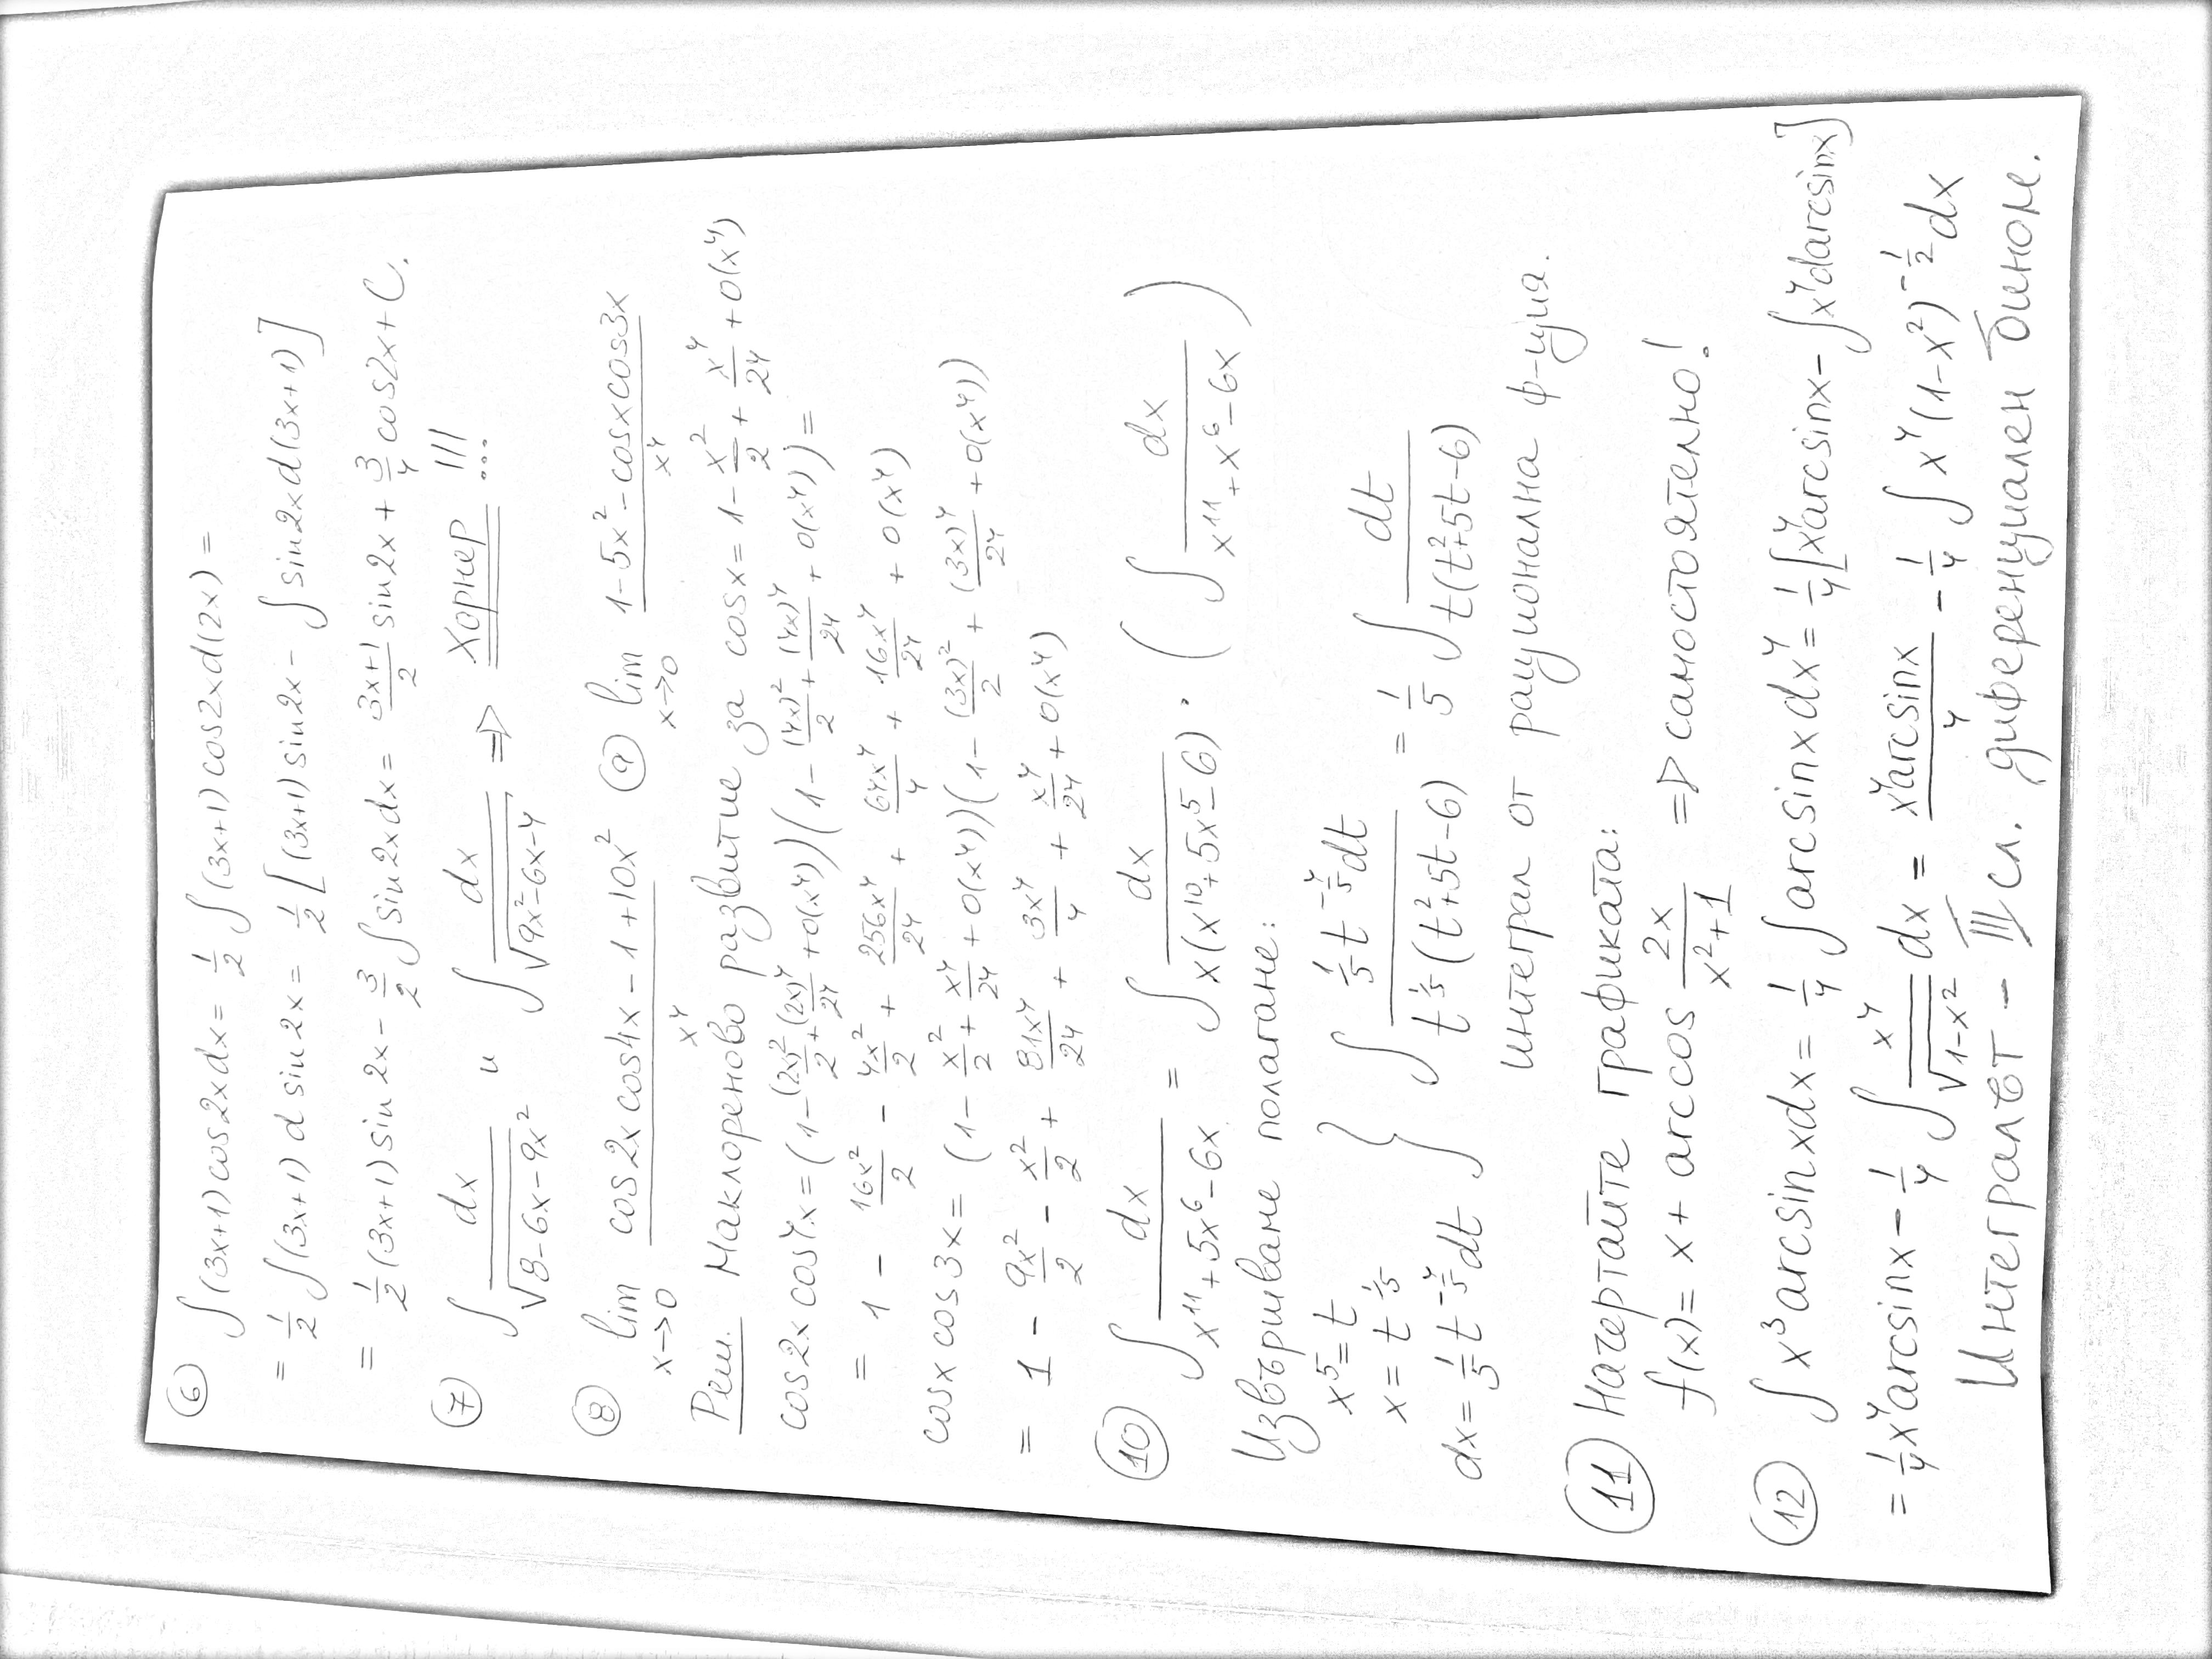 ⑥ ∫(3x+1)cos2xdx = 1/2 ∫(3x+1)cos2xd(2x) =
= 1/2 ∫(3x+1) d sin2x = 1/2 [(3x+1)sin2x - ∫sin2xd(3x+1)]
= 1/2 (3x+1)sin2x - 3/2 ∫sin2xdx = (3x+1)/2 sin2x + 3/4 cos2x + C.
⑦ ∫ dx/√(8-6x-9x²) и ∫ dx/√(9x²-6x-4) => Хорнер !!!
⑧ lim x→0 (cos2xcos4x-1+10x²)/x⁴ ⑨ lim x→0 (1-5x²-cosxcos3x)/x⁴
Реш. Маклореново развитие за cosx = 1 - x²/2 + x⁴/24 + 0(x⁴)
cos2x cos4x = (1 - (2x)²/2 + (2x)⁴/24 + 0(x⁴))(1 - (4x)²/2 + (4x)⁴/24 + 0(x⁴)) =
= 1 - 16x²/2 - 4x²/2 + 256x⁴/24 + 64x⁴/4 + 16x⁴/24 + 0(x⁴)
cosx cos3x = (1 - x²/2 + x⁴/24 + 0(x⁴))(1 - (3x)²/2 + (3x)⁴/24 + 0(x⁴))
= 1 - 9x²/2 - x²/2 + 81x⁴/24 + 3x⁴/4 + x⁴/24 + 0(x⁴)
⑩ ∫ dx/(x¹¹+5x⁶-6x) = ∫ dx/(x(x¹⁰+5x⁵-6)) . (∫ dx/(x¹¹+x⁶-6x))
Извършваме полагане:
x⁵ = t
x = t^(1/5)
dx = 1/5 t^(-4/5) dt } ∫ (1/5 t^(-4/5) dt)/(t^(1/5)(t²+5t-6)) = 1/5 ∫ dt/(t(t²+5t-6))
интеграл от рационална ф-ция.
⑪ Начертайте графиката:
f(x) = x + arccos 2x/(x²+1) => самостоятелно!
⑫ ∫x³arcsinxdx = 1/4 ∫arcsinxdx⁴ = 1/4 [x⁴arcsinx - ∫x⁴darcsinx]
= 1/4 x⁴arcsinx - 1/4 ∫ x⁴/√(1-x²) dx = x⁴arcsinx/4 - 1/4 ∫x⁴(1-x²)^(-1/2) dx
Интегралът - III сл. диференциален бином.